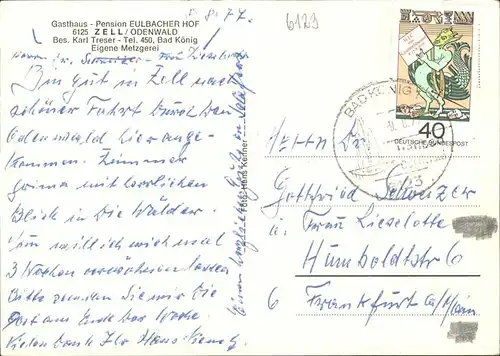 Gasthaus - Pension EULBACHER HOF
6125 ZELL / ODENWALD
Bes. Karl Treser - Tel. 450, Bad König
Eigene Metzgerei
6123
Bin gut in Zell nach
schöner Fahrt durch den
Odenwald hier ange-
kommen. Zimmer
prima mit herrlichen
Blick in die Wälder.
will ich mich mal
3 Wochen verwöhnen lassen
Bitte senden Sie mir die
Post am Ende der Woche
Vielen Dank Ihr Hans
Foto: Hans Kenner
BAD KÖNIG
40
DEUTSCHE BUNDESPOST
Herrn Dr
Gottfried Schweizer
u. Frau Lieselotte
Humboldtstr 6
6 Frankfurt a/Main